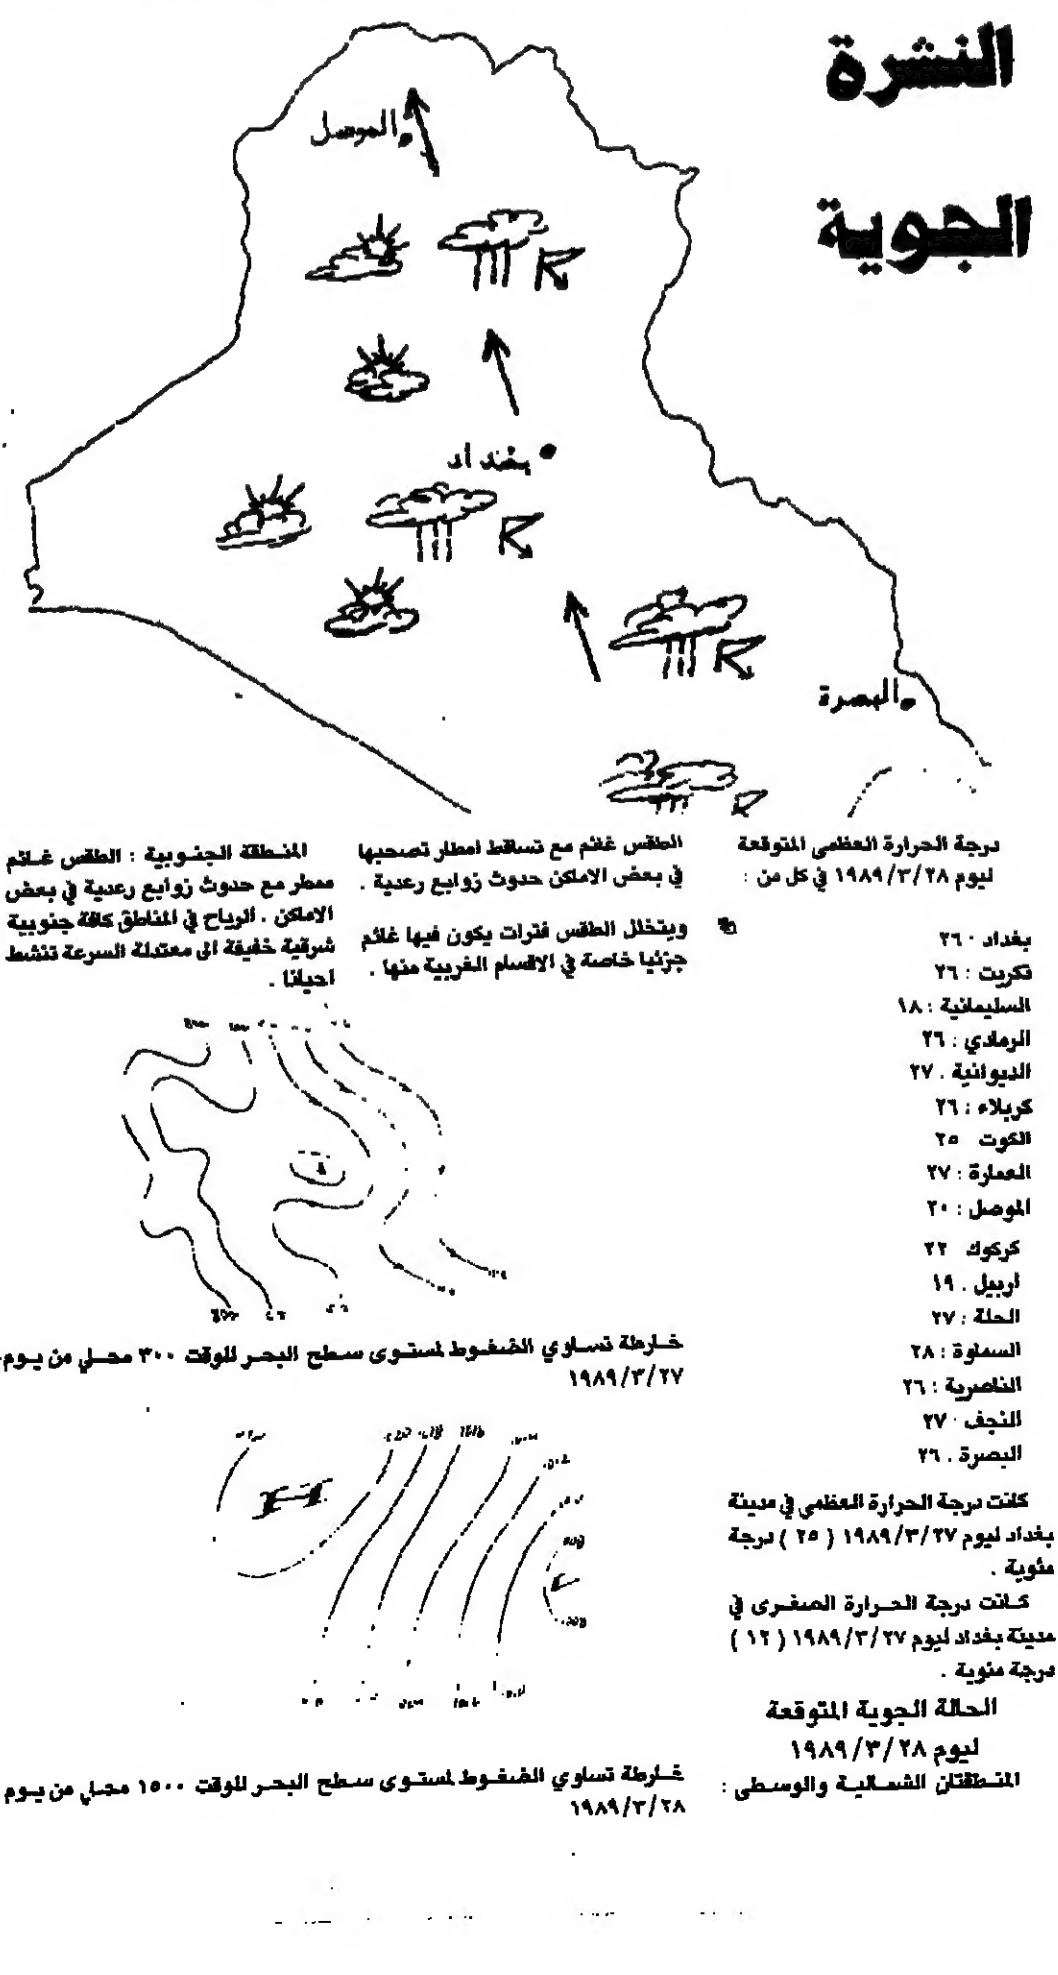 النشرة
الجوية
الموصل
بغداد
البصرة
درجة الحرارة العظمى المتوقعة
ليوم ١٩٨٩/٣/٢٨ في كل من :
بغداد ٢٦
تكريت : ٢٦
السليمانية : ١٨
الرمادي : ٢٦
الديوانية . ٢٧
كربلاء : ٢٦
الكوت ٢٥
العمارة : ٢٧
الموصل : ٢٠
كركوك ٢٢
اربيل . ١٩
الحلة : ٢٧
السماوة : ٢٨
الناصرية : ٢٦
النجف ٢٧
البصرة . ٢٦
كانت درجة الحرارة العظمى في مدينة
بغداد ليوم ١٩٨٩/٣/٢٧ ( ٢٥ ) درجة
مئوية .
كانت درجة الحرارة الصغرى في
مدينة بغداد ليوم ١٩٨٩/٣/٢٧ ( ١٢ )
درجة مئوية .
الحالة الجوية المتوقعة
ليوم ١٩٨٩/٣/٢٨
المنطقتان الشمالية والوسطى :
الطقس غائم مع تساقط امطار تصحبها
في بعض الاماكن حدوث زوابع رعدية .
ويتخلل الطقس فترات يكون فيها غائم
جزئيا خاصة في الاقسام الغربية منها .
المنطقة الجنوبية : الطقس غائم
ممطر مع حدوث زوابع رعدية في بعض
الاماكن . الرياح في المناطق كافة جنوبية
شرقية خفيفة الى معتدلة السرعة تنشط
احيانا .
خارطة تساوي الضغوط لمستوى سطح البحر للوقت ٣٠٠ محلي من يوم
١٩٨٩/٣/٢٧
خارطة تساوي الضغوط لمستوى سطح البحر للوقت ١٥٠٠ محلي من يوم
١٩٨٩/٣/٢٨